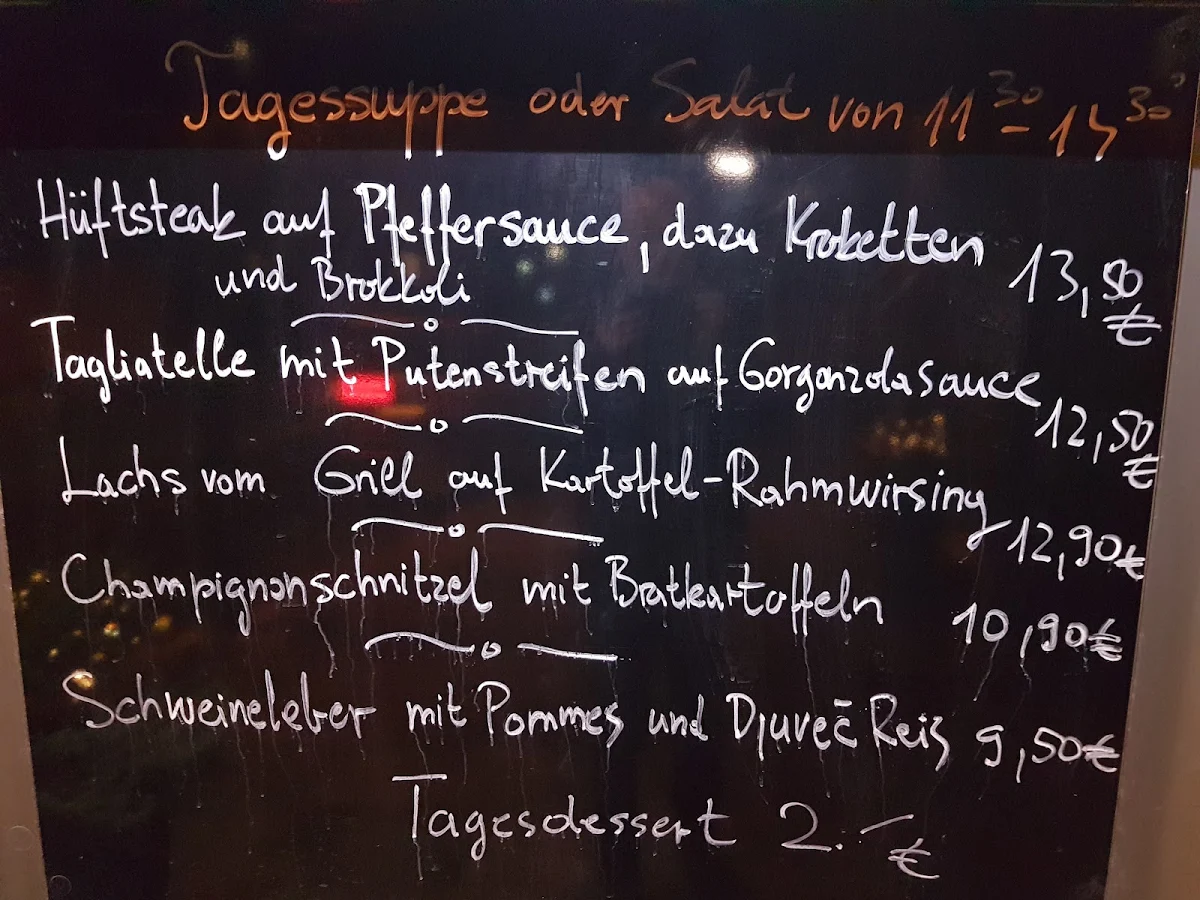 Tagessuppe oder Salat von 11³⁰ - 14³⁰
Hüftsteak auf Pfeffersauce, dazu Kroketten
und Brokkoli 13,50 €
Tagliatelle mit Putenstreifen auf Gorgonzolasauce
12,50 €
Lachs vom Grill auf Kartoffel-Rahmwirsing
12,90 €
Champignonschnitzel mit Bratkartoffeln 10,90 €
Schweineleber mit Pommes und Djuveč Reis 9,50 €
Tagesdessert 2.- €